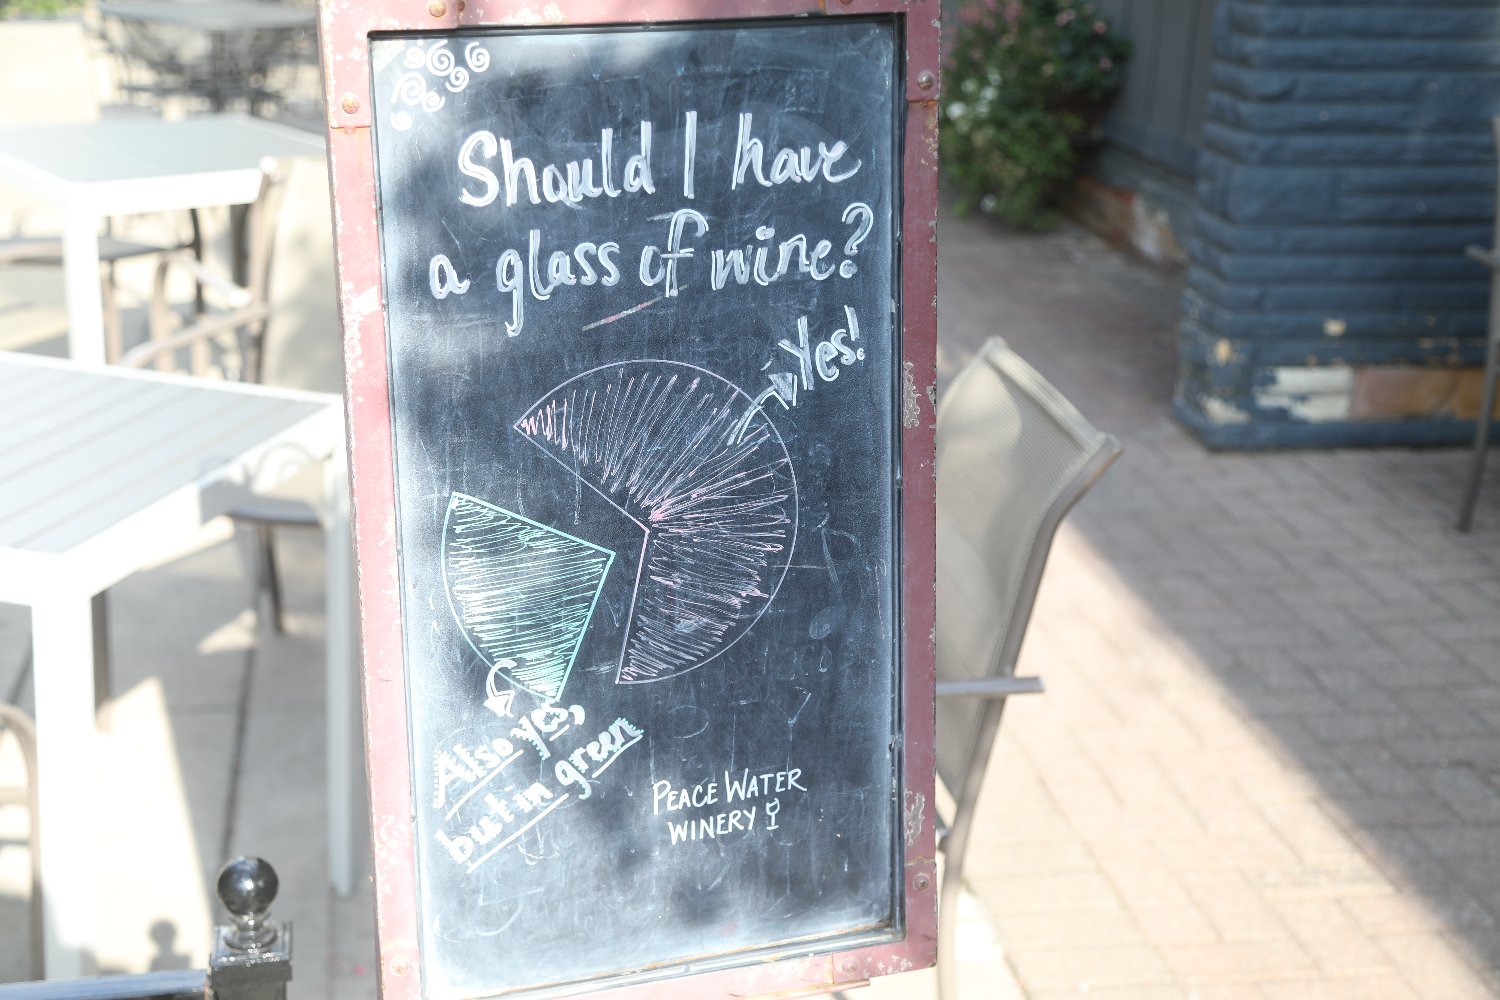 Should I have
a glass of wine?
Yes!
Also yes,
but in green
PEACE WATER
WINERY